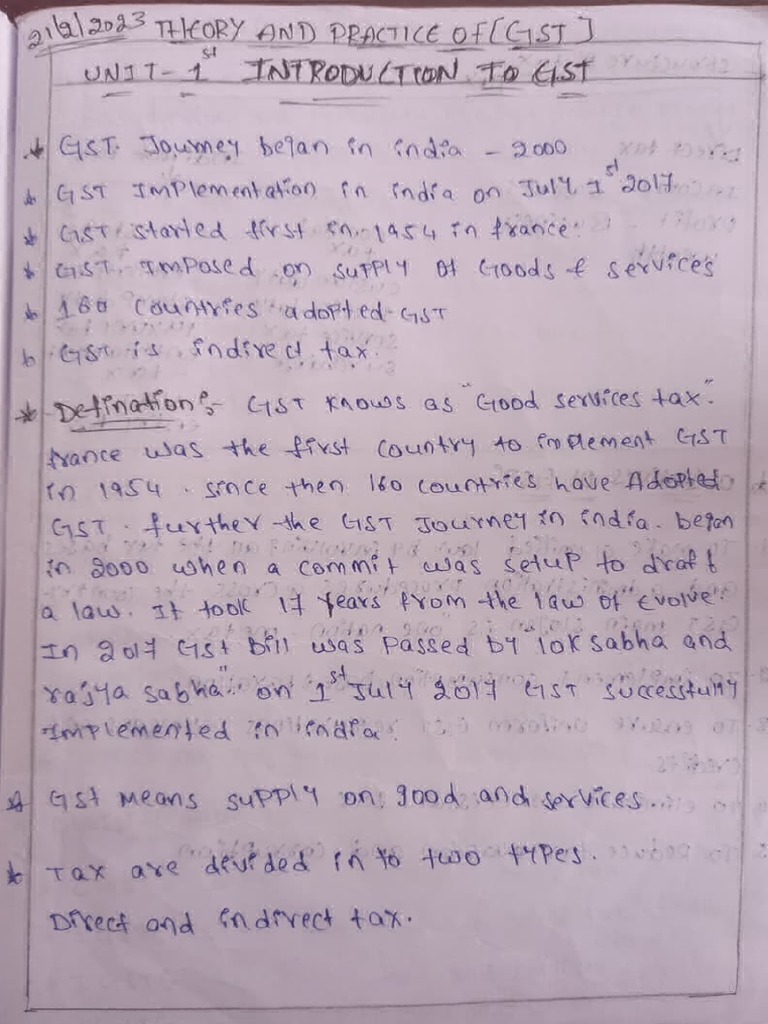 21/2/2023 THEORY AND PRACTICE OF [GST]
UNIT-1st INTRODUCTION TO GST
* GST Journey began in india - 2000
* GST Implementation in india on July 1st 2017
* GST started first in 1954 in france.
* GST Imposed on supply of Goods & services
* 160 countries adopted GST
* GST is indirect tax.
* Defination:- GST knows as "Good services tax".
france was the first country to implement GST
in 1954. since then 160 countries have Adopted
GST. further the GST Journey in india. began
in 2000 when a commit was setup to draft
a law. It took 17 years from the law of Evolve.
In 2017 GST bill was passed by "lok sabha and
rajya sabha". on 1st July 2017 GST successfully
Implemented in india.
* GST Means supply on good and services.
* Tax are devided in to two types.
Direct and indirect tax.